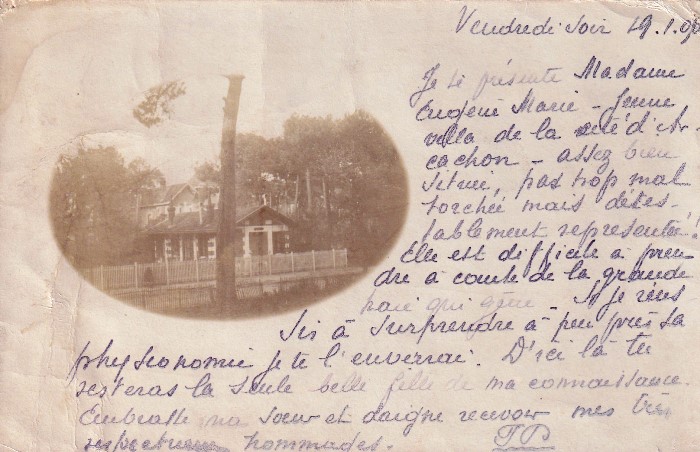 Vendredi soir 19.1.0
Je te présente Madame
Eugène Marie - Jeune
villa de la cité d'Ar
cachon - assez bien
située, pas trop mal
torchée mais détes-
tablement représentée!
Elle est difficile à pren
dre à cause de la grande
haie qui gêne - Si je réus
sis à surprendre à peu près sa
physionomie je te l'enverrai. D'ici là tu
resteras la seule belle fille de ma connaissance.
Embrasse ma sœur et daigne recevoir mes très
respectueux hommages.